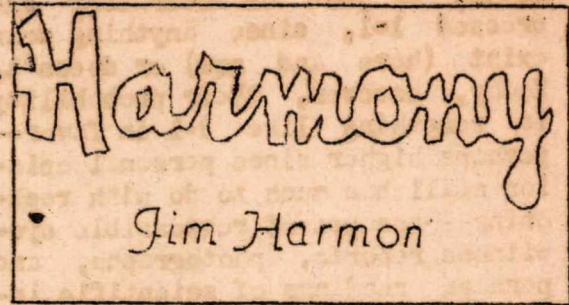 Harmony
Jim Harmon